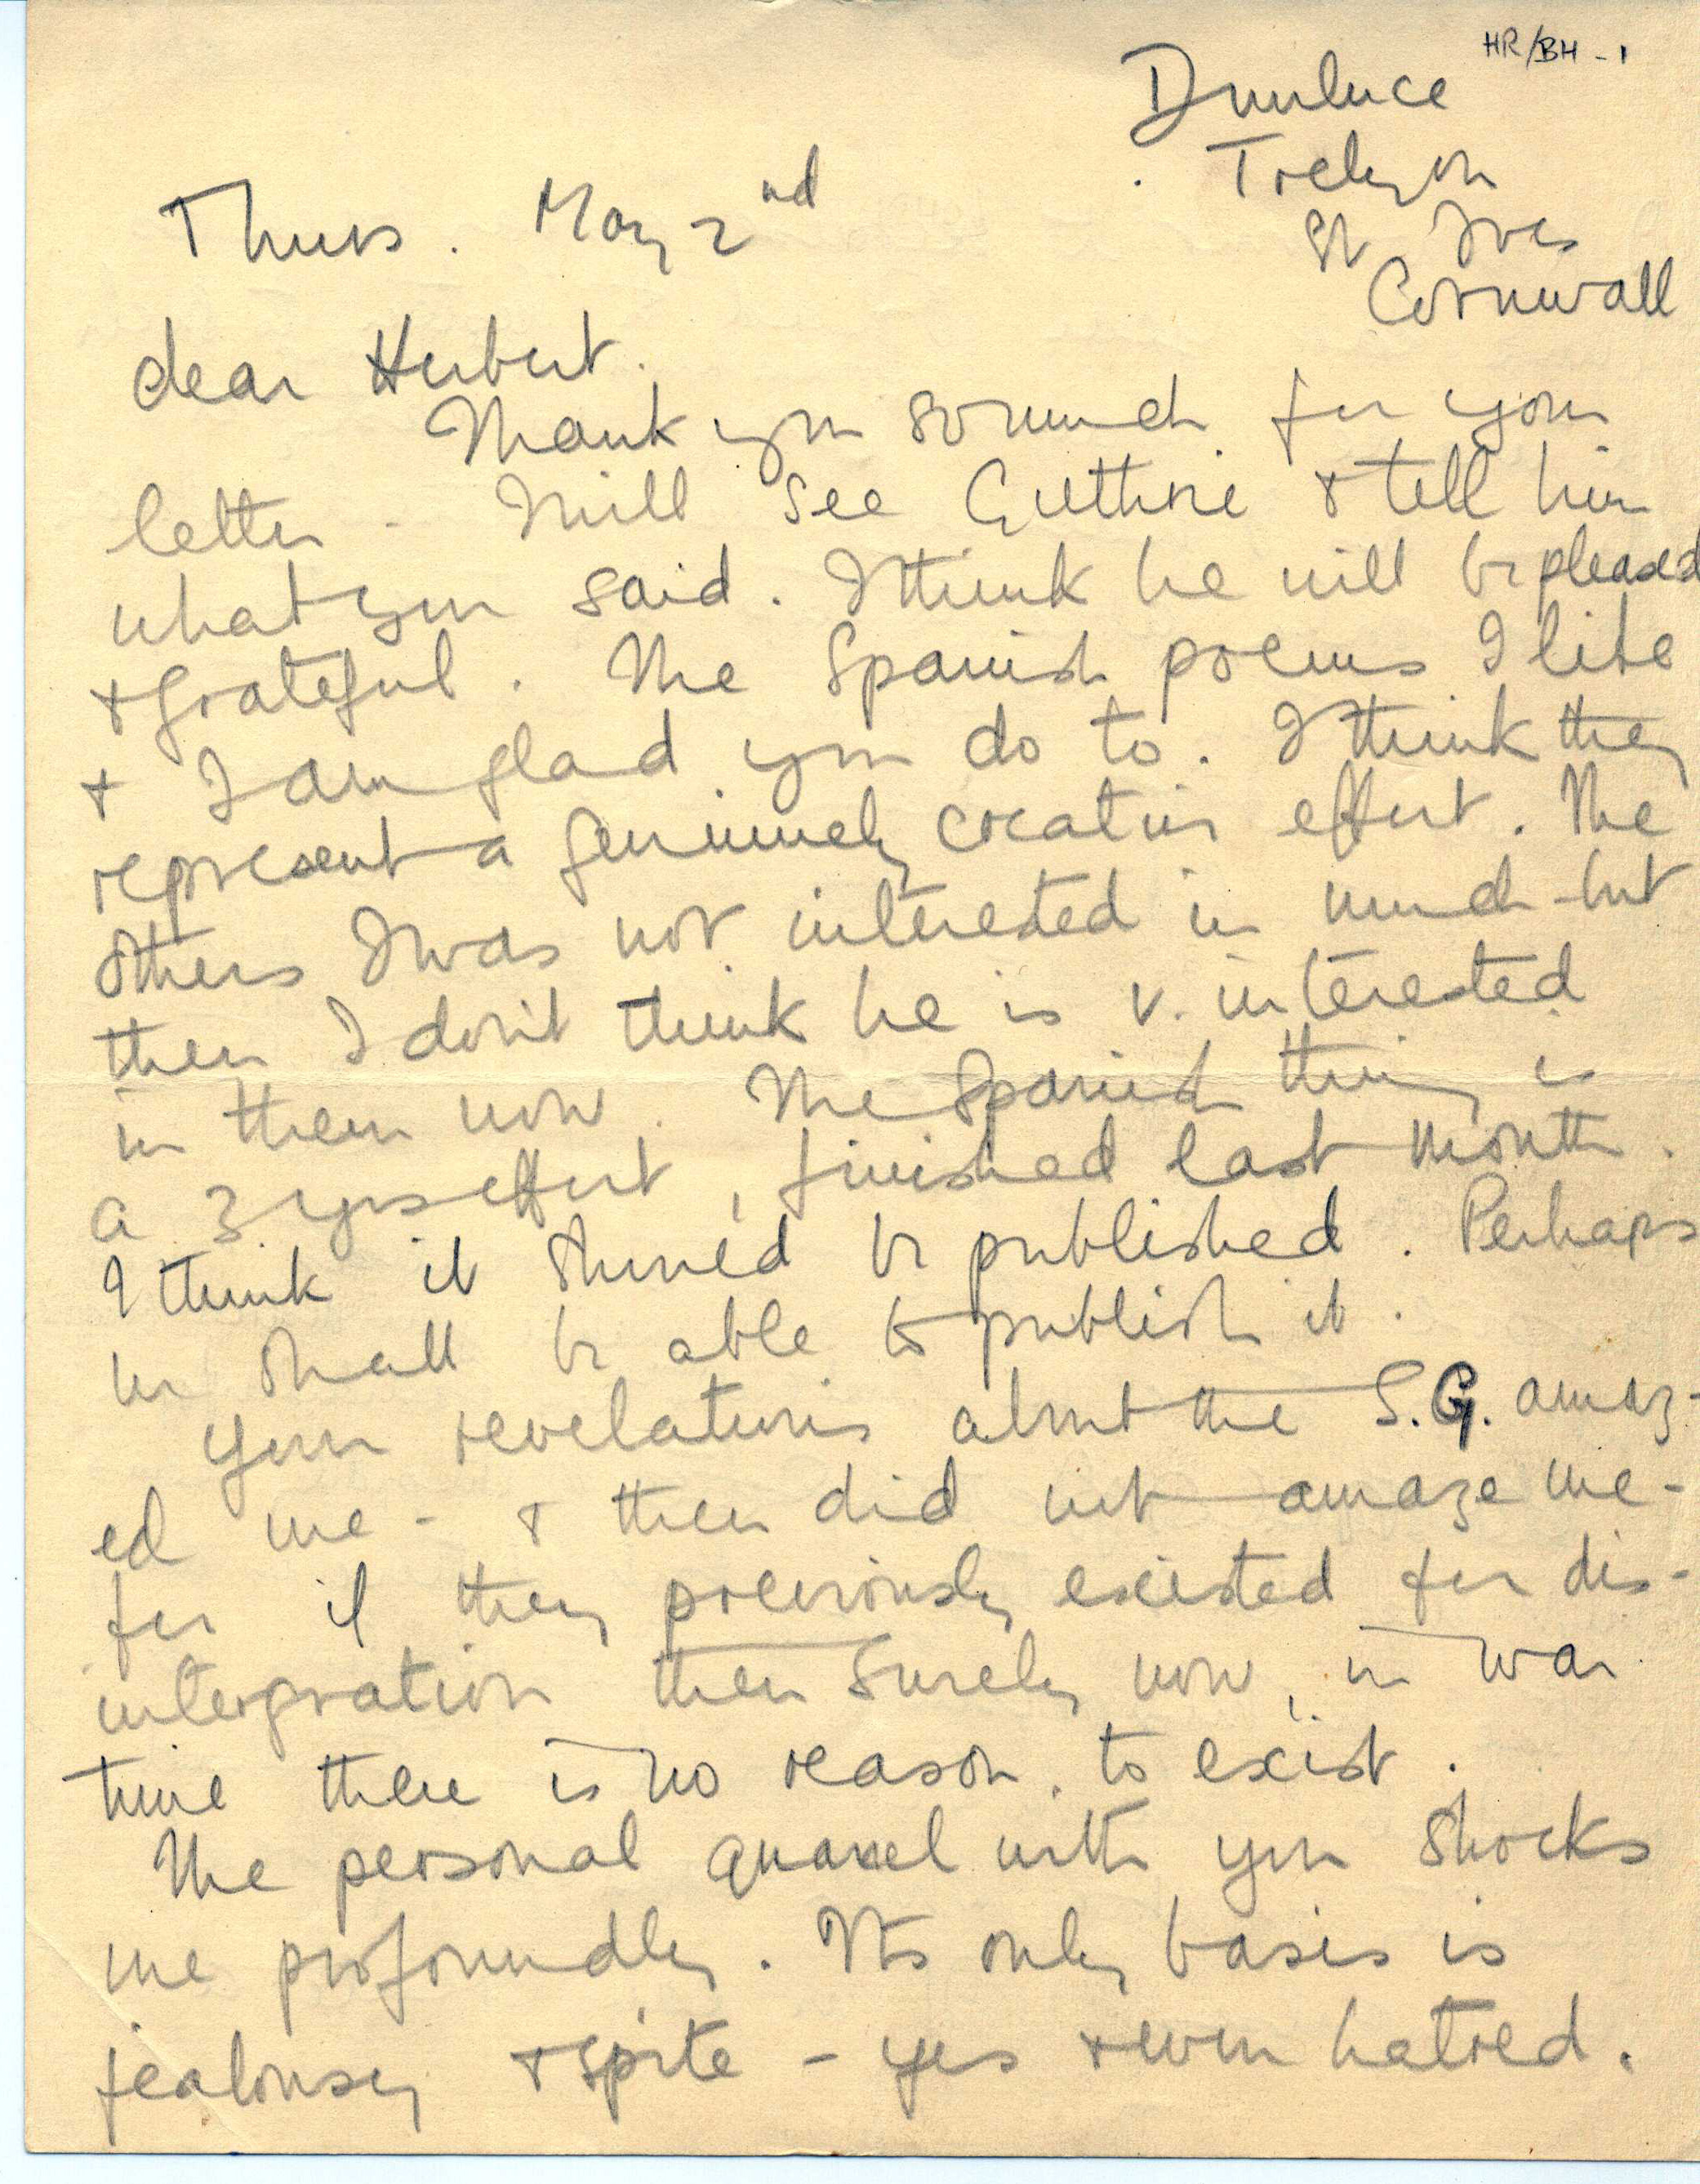 HR/BH-1
Dunluce
Trelyon
St Ives
Cornwall
Thurs. May 2nd
dear Herbert.
Thank you so much for your
letter - I will see Guthrie & tell him
what you said. I think he will be pleased
& grateful. The Spanish poems I like
& I am glad you do to. I think they
represent a genuinely creative effort. The
others I was not interested in much - but
then I don't think he is v. interested
in them now. The Spanish thing is
a 3 yrs effort, finished last month.
I think it should be published. Perhaps
we shall be able to publish it.
Your revelations about the S.G. amaz-
ed me - & then did not amaze me -
for if they previously existed for dis-
intergration then surely now, in war
time there is no reason to exist.
The personal quarrel with you shocks
me profoundly. Its only basis is
jealousy & spite - yes & even hatred.